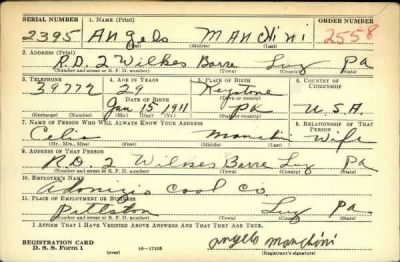 SERIAL NUMBER 1. NAME (Print) ORDER NUMBER
2395 Angelo Manchini 2558
(First) (Middle) (Last)
2. ADDRESS (Print)
R.D. 2 Wilkes Barre Luz Pa
(Number and street or R. F. D. number) (Town) (County) (State)
3. TELEPHONE 4. AGE IN YEARS 5. PLACE OF BIRTH 6. COUNTRY OF CITIZENSHIP
39777 29 Keystone
DATE OF BIRTH (Town or county)
Jan 15 1911 Pa U.S.A.
(Exchange) (Number) (Mo.) (Day) (Yr.) (State or country)
7. NAME OF PERSON WHO WILL ALWAYS KNOW YOUR ADDRESS 8. RELATIONSHIP OF THAT PERSON
Celia Wife
(Mr., Mrs., Miss) (First) (Middle) (Last)
9. ADDRESS OF THAT PERSON
R.D. 2 Wilkes Barre Luz Pa
(Number and street or R. F. D. number) (Town) (County) (State)
10. EMPLOYER'S NAME
Adonizio Coal Co.
11. PLACE OF EMPLOYMENT OR BUSINESS
Pittston Luz Pa.
(Number and street or R. F. D. number) (Town) (County) (State)
I AFFIRM THAT I HAVE VERIFIED ABOVE ANSWERS AND THAT THEY ARE TRUE.
REGISTRATION CARD
D. S. S. Form 1 (over) angelo manchini
(Registrant's signature)